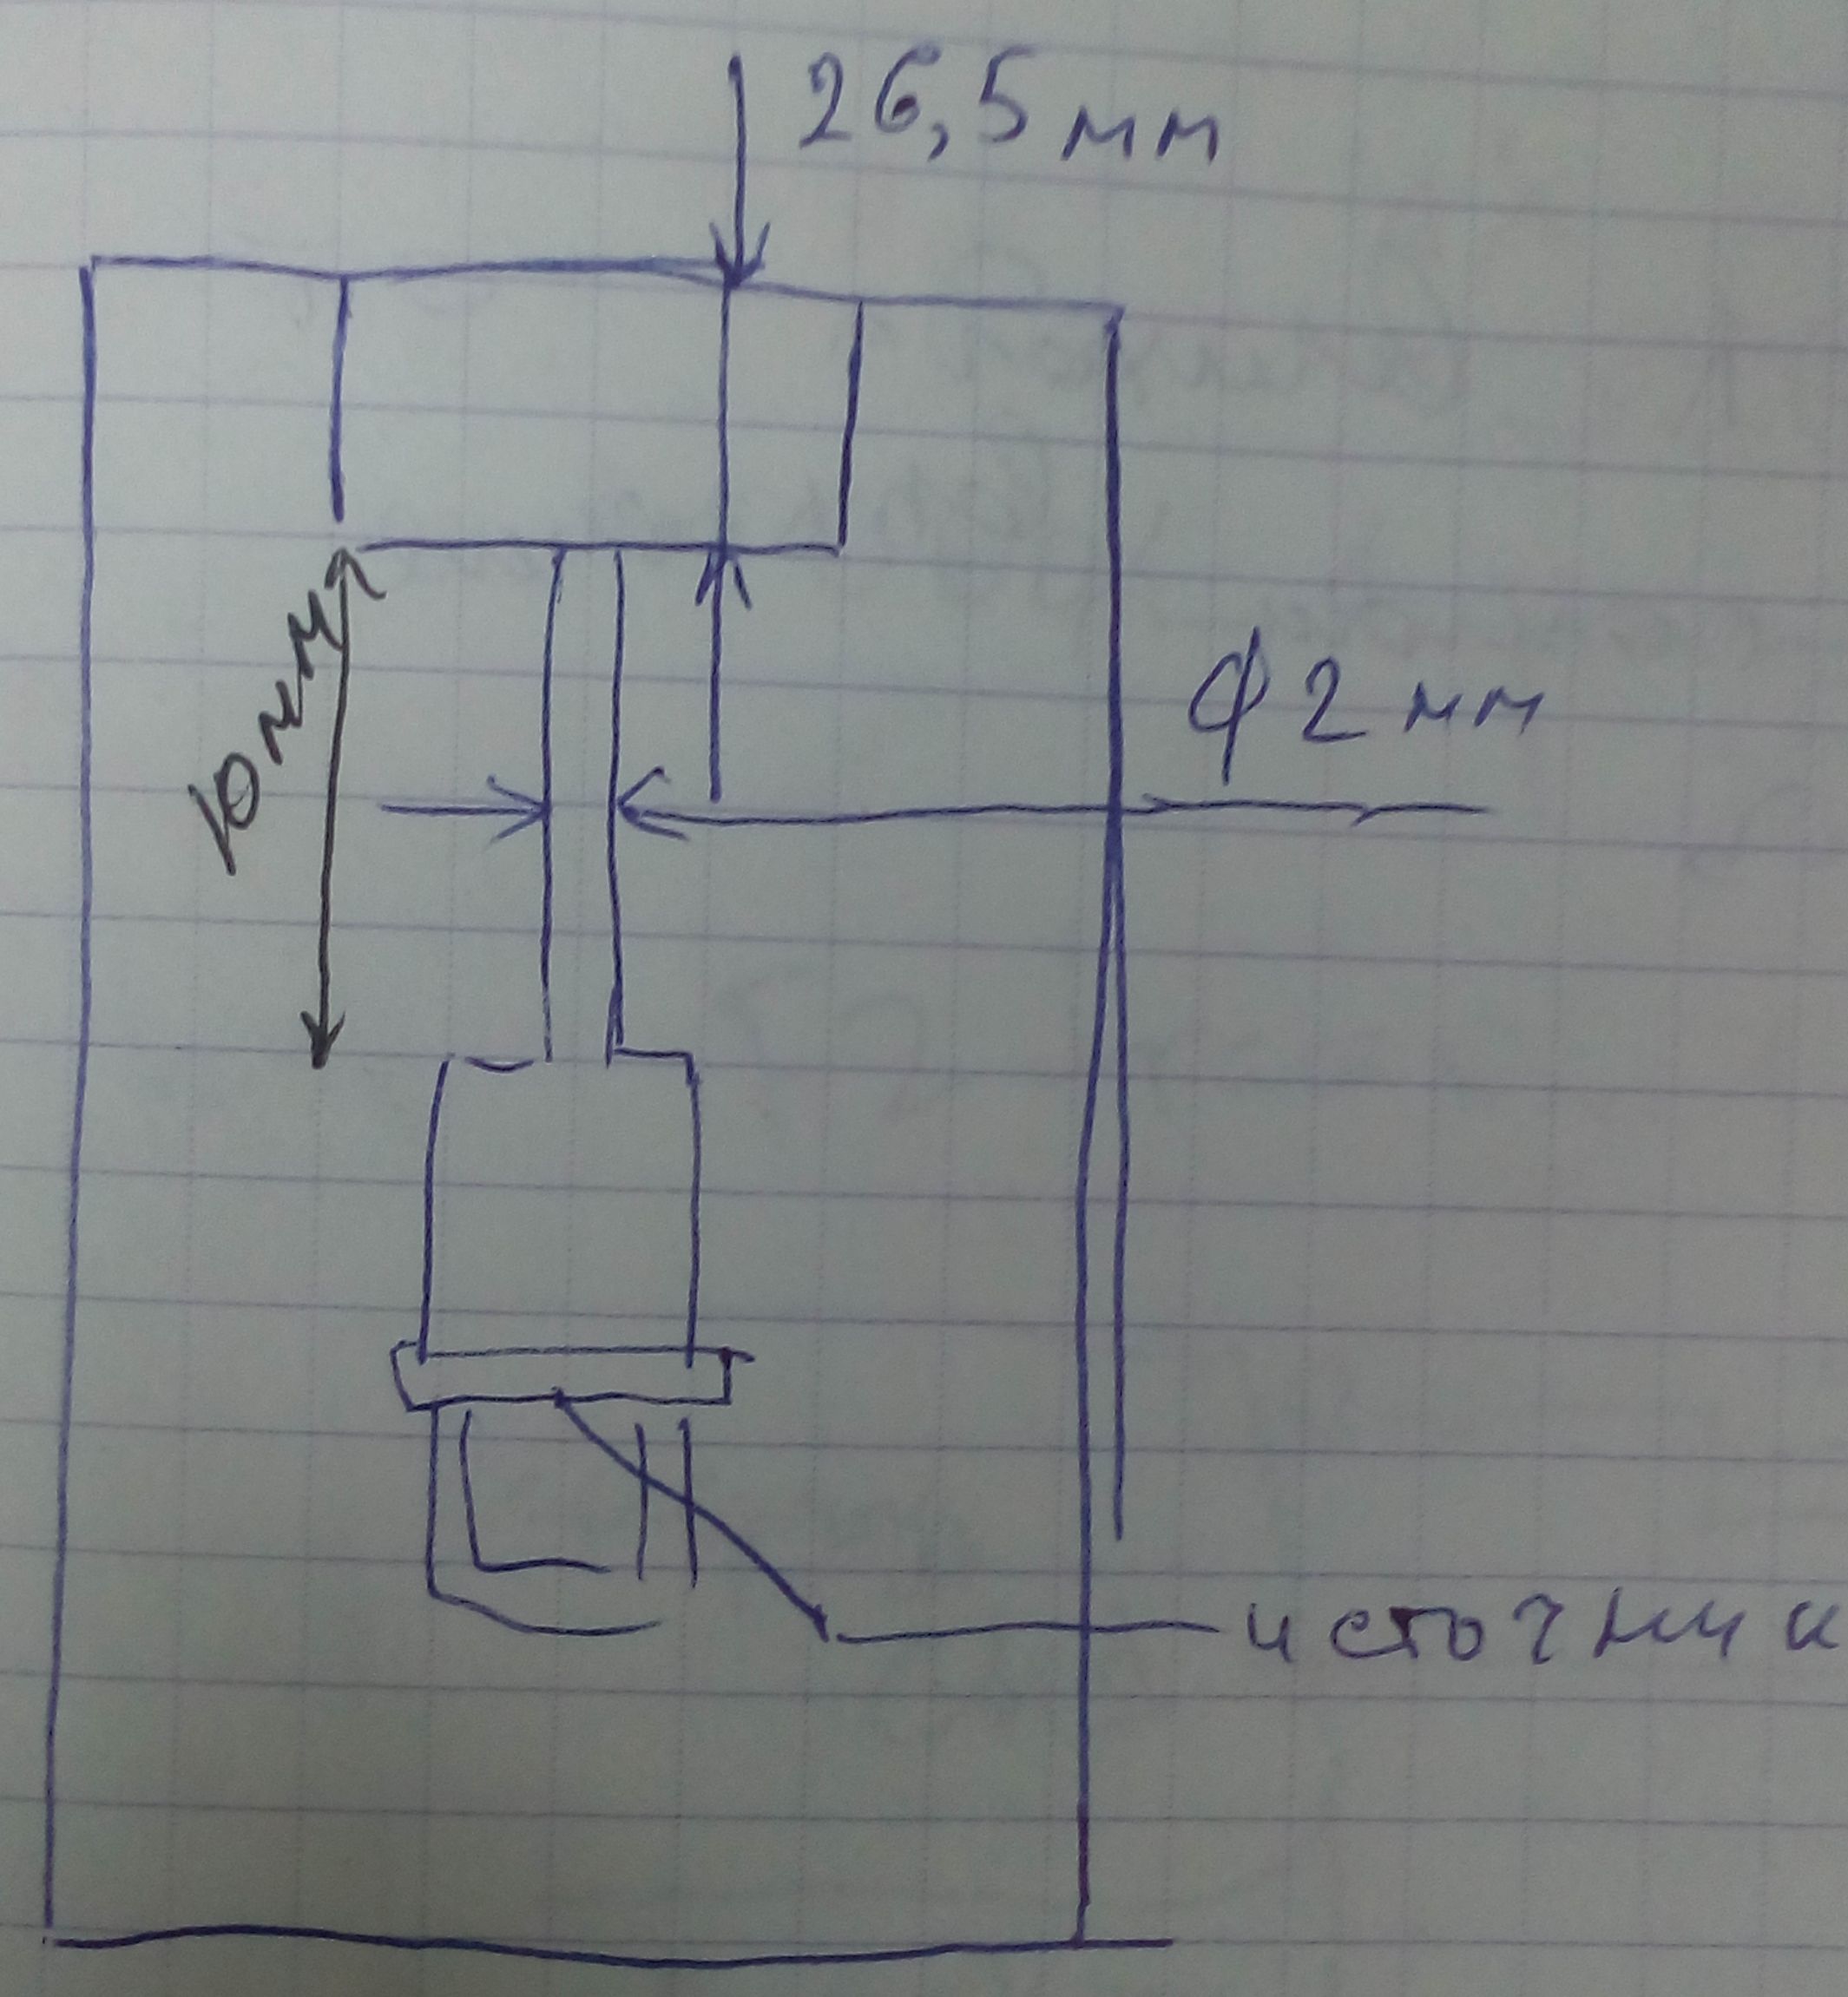 26,5 мм
10 мм
ф 2 мм
источник